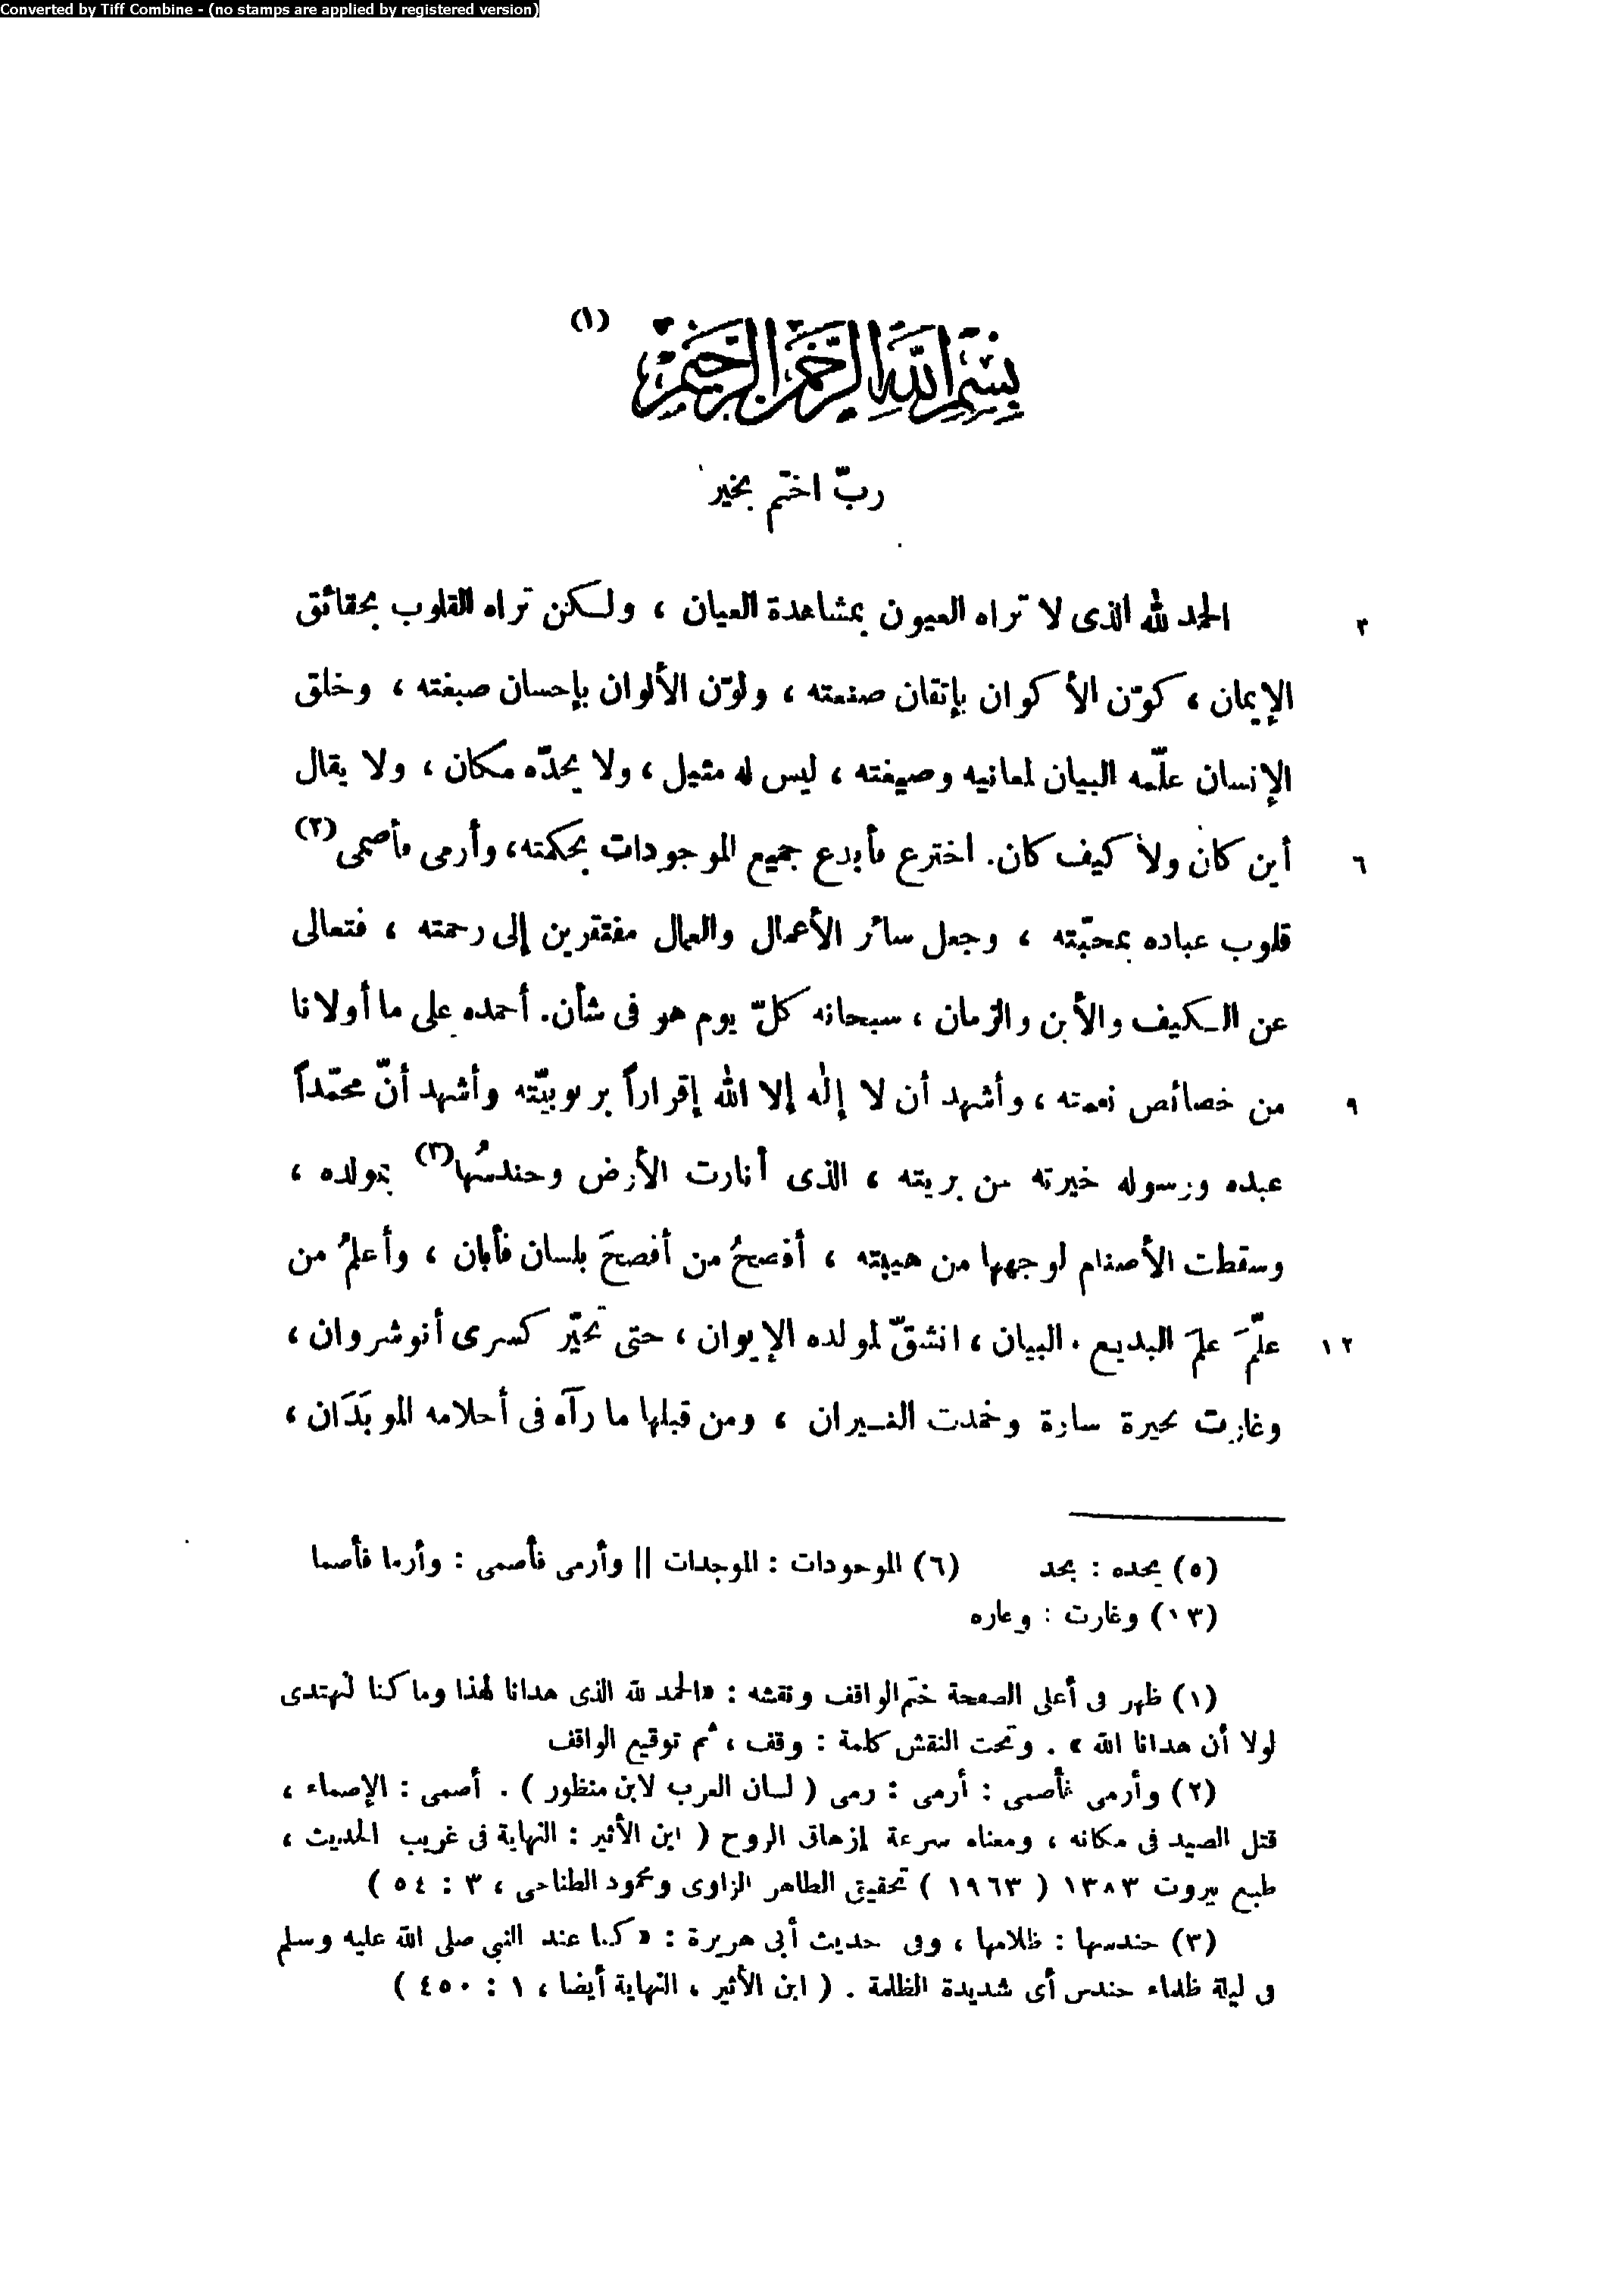 Converted by Tiff Combine - (no stamps are applied by registered version)
بِسْمِ اللَّهِ الرَّحْمَنِ الرَّحِيمِ (١)
ربّ اختم بخير
٣ الحمد لله الذى لا تراه العيون بمشاهدة العيان ، ولكن تراه القلوب بحقائق
الإيمان ، كوّن الأكوان بإتقان صنعته ، ولوّن الألوان بإحسان صبغته ، وخلق
الإنسان علّمه البيان لمعانيه وصيغته ، ليس له مثيل ، ولا يحدّه مكان ، ولا يقال
٦ أين كان ولا كيف كان. اخترع فأبدع جميع الموجودات بحكمته، وأرمى فأصمى(٢)
قلوب عباده بمحبّته ، وجعل سائر الأعمال والعمال مفتقرين إلى رحمته ، فتعالى
عن الكيف والأين والزمان ، سبحانه كلّ يوم هو فى شأن. أحمده على ما أولانا
٩ من خصائص نعمته ، وأشهد أن لا إله إلا الله إقراراً بربوبيّته وأشهد أنّ محمّداً
عبده ورسوله خيرته من بريته ، الذى أنارت الأرض وحندسُها(٣) بمولده ،
وسقطت الأصنام لوجهها من هيبته ، أفصحُ من أفصحَ بلسان فأبان ، وأعلمُ من
١٢ علّمَ علمَ البديع . البيان ، انشقّ لمولده الإيوان ، حتى تحيّر كسرى أنوشروان ،
وغارت بحيرة ساوة وخمدت النيران ، ومن قبلها ما رآه فى أحلامه الموبَذَان ،
(٥) يحده : بحد (٦) الموحودات : الموجدات || وأرمى فأصمى : وأرما فأصما
(١٣) وغارت : وعاره
(١) ظهر فى أعلى الصفحة ختم الواقف ونقشه : «الحمد لله الذى هدانا لهذا وما كنا لنهتدى
لولا أن هدانا الله » . وتحت النقش كلمة : وقف ، ثم توقيع الواقف
(٢) وأرمى فأصمى : أرمى : رمى ( لسان العرب لابن منظور ) . أصمى : الإصماء ،
قتل الصيد فى مكانه ، ومعناه سرعة إزهاق الروح ( ابن الأثير : النهاية فى غريب الحديث ،
طبع بيروت ١٣٨٣ ( ١٩٦٣ ) تحقيق الطاهر الزاوى ومحمود الطناحى ، ٣ : ٥٤ )
(٣) حندسها : ظلامها ، وفى حديث أبى هريرة : « كنا عند النبي صلى الله عليه وسلم
فى ليلة ظلماء حندس أى شديدة الظلمة . ( ابن الأثير ، النهاية أيضا ، ١ : ٤٥٠ )